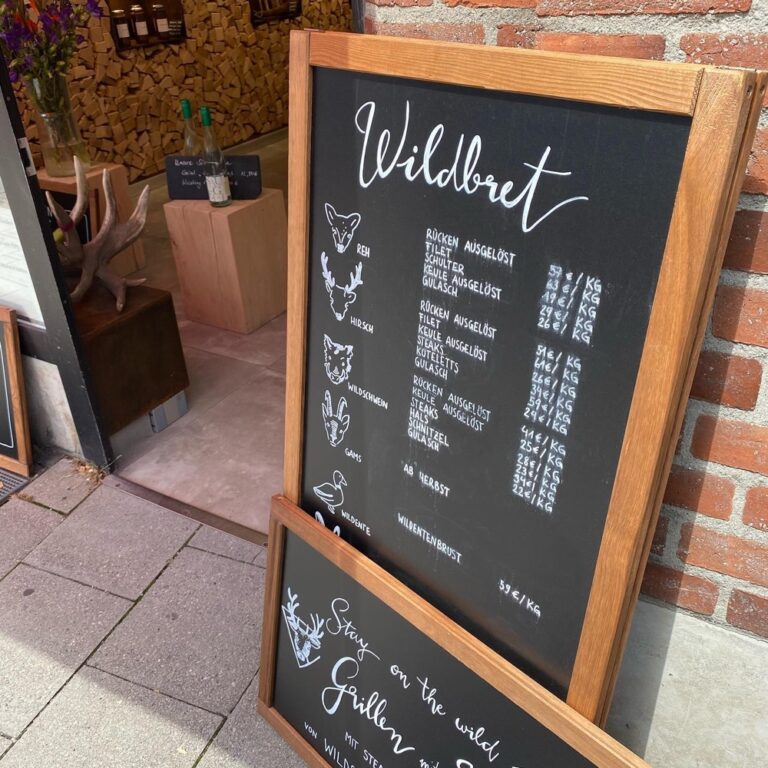 Wildbret
REH
RÜCKEN AUSGELÖST 59 €/KG
FILET 63 €/KG
SCHULTER 19 €/KG
KEULE AUSGELÖST 29 €/KG
GULASCH 26 €/KG
HIRSCH
RÜCKEN AUSGELÖST 51 €/KG
FILET 61 €/KG
KEULE AUSGELÖST 26 €/KG
STEAKS 34 €/KG
KOTELETTS 39 €/KG
GULASCH 24 €/KG
WILDSCHWEIN
RÜCKEN AUSGELÖST 41 €/KG
KEULE AUSGELÖST 25 €/KG
STEAKS 28 €/KG
HALS 23 €/KG
SCHNITZEL 34 €/KG
GULASCH 22 €/KG
GAMS
AB HERBST
WILDENTE
WILDENTENBRUST 39 €/KG
Stay on the wild
Grillen
MIT
VON